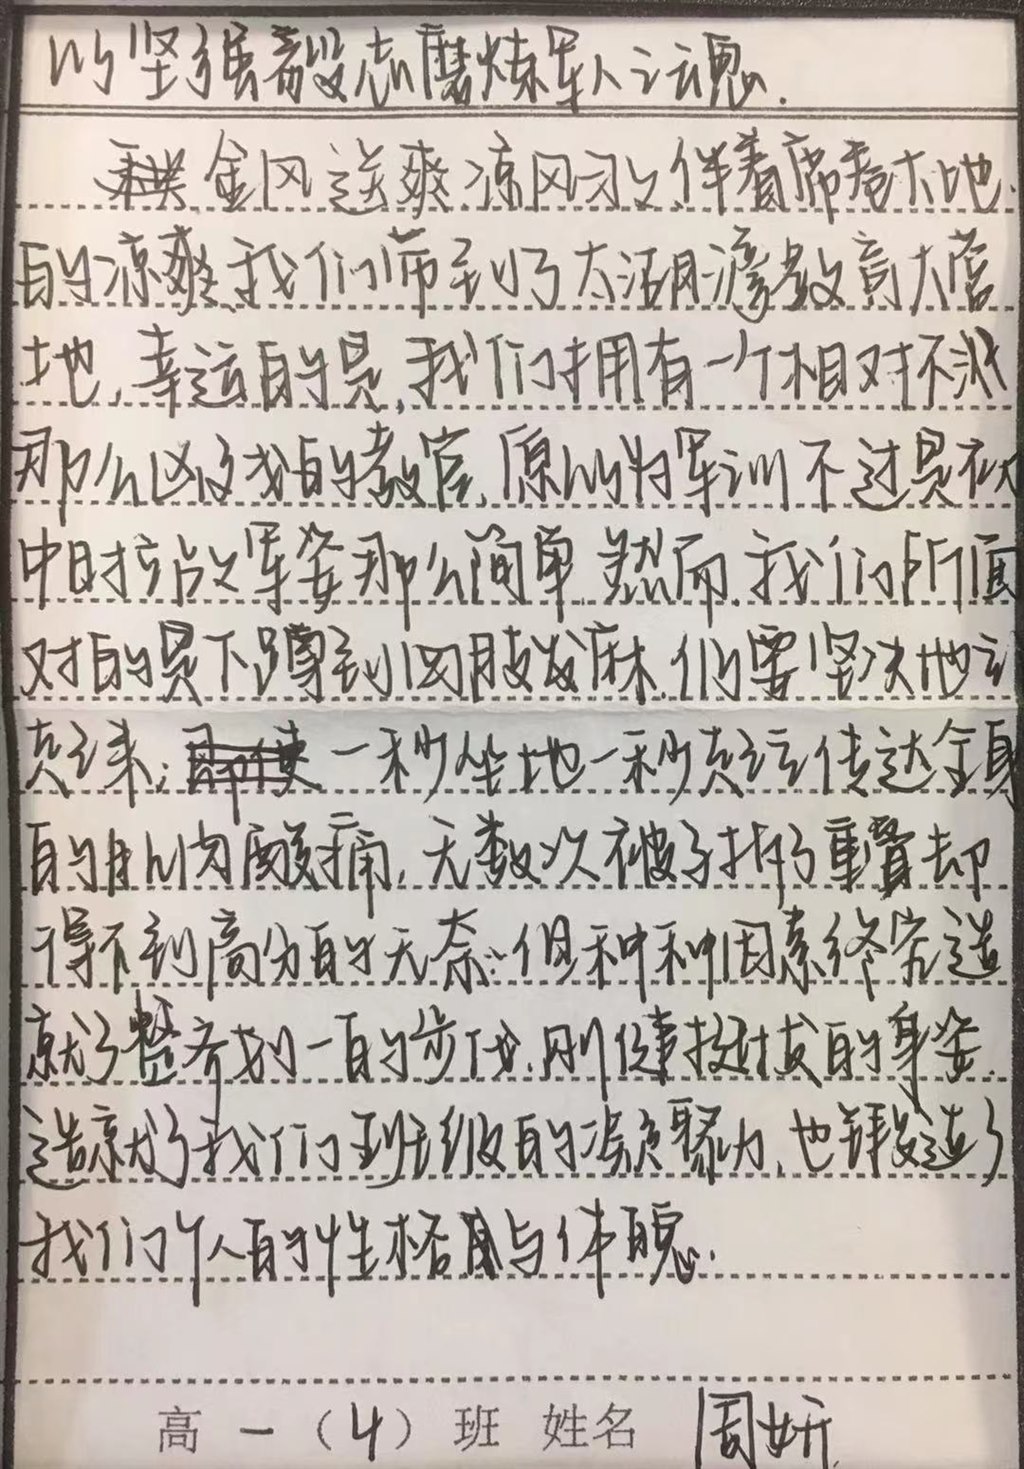 以坚强毅志磨炼军人之魂.
金风送爽,凉风习习,伴着席卷大地
的凉爽,我们来到了太湖湾教育大营
地,幸运的是,我们拥有一个相对不
那么凶的教官,原以为军训不过是
中时站站军姿那么简单.然而,我们所面
对的是下蹲到四肢发麻,仍要坚决地
一秒坐地一秒传达全身
的肌肉酸痛,无数次被子折了重叠却
得不到高分的无奈…但种种因素终究造
就了整齐划一的步伐,刚健挺拔的身姿.
造就了我们班级的凝聚力,也锻造了
我们个人的性格与体魄.
高一(4)班 姓名 周妍